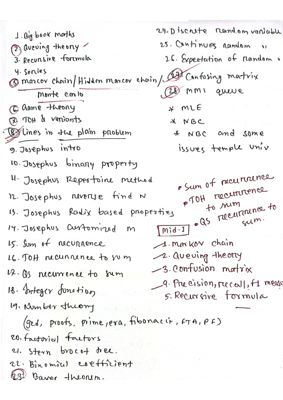 1. Big book maths
2. Queuing theory
3. Recursive formula
4. Series
5. marcov chain / Hidden marcov chain /
Monte carlo
6. Game theory
7. TOH & variants
8. Lines in the plain problem
9. Josephus intro
10. Josephus binary property
11. Josephus Repertoire method
12. Josephus reverse find N
13. Josephus Radix based properties
14. Josephus customized m
15. Sum of recurrence
16. TOH recurrence to sum
17. QS recurrence to sum
18. Integer function
19. Number theory
(gcd, proofs, prime, era, fibonacci, FTA, PF)
20. factorial factors
21. Stern brocot tree.
22. Binomial coefficient
23. Bayes theorem.
24. Discrete random variable
25. Continues random "
26. Expectation of random "
27. Confusing matrix
28. MM1 queue
* MLE
* NBC
* NBC and some
issues temple univ
• Sum of recurrence
• TOH recurrence
to sum
• QS recurrence to
sum.
Mid-1
1. marcov chain
2. Queuing theory
3. Confusion matrix
4. Precision, recall, f1 meas
5. Recursive formula